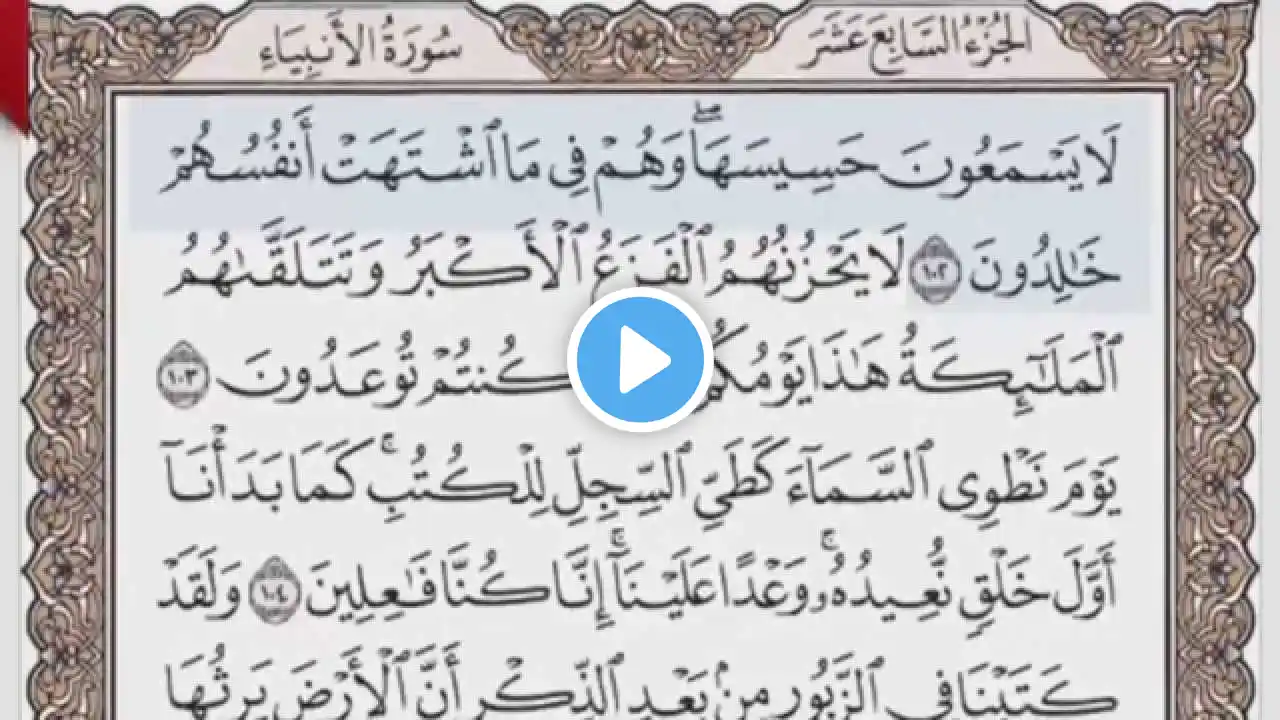 الجزء السابع عشر
سورة الأنبياء
لَا يَسْمَعُونَ حَسِيسَهَا ۖ وَهُمْ فِي مَا ٱشْتَهَتْ أَنفُسُهُمْ
خَٰلِدُونَ ١٠٢ لَا يَحْزُنُهُمُ ٱلْفَزَعُ ٱلْأَكْبَرُ وَتَتَلَقَّىٰهُمُ
ٱلْمَلَٰٓئِكَةُ هَٰذَا يَوْمُكُمُ كُنتُمْ تُوعَدُونَ ١٠٣
يَوْمَ نَطْوِى ٱلسَّمَآءَ كَطَىِّ ٱلسِّجِلِّ لِلْكُتُبِ ۚ كَمَا بَدَأْنَآ
أَوَّلَ خَلْقٍ نُّعِيدُهُۥ ۚ وَعْدًا عَلَيْنَآ ۚ إِنَّا كُنَّا فَٰعِلِينَ ١٠٤ وَلَقَدْ
كَتَبْنَا فِى ٱلزَّبُورِ مِنۢ بَعْدِ ٱلذِّكْرِ أَنَّ ٱلْأَرْضَ يَرِثُهَا